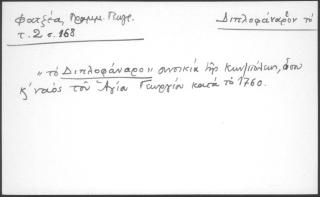 Φατζέα, Γραμμ. Γεωγρ.
τ. 2 σ. 168
Διπλοφάναρον τό
"τό Διπλοφάναρο" συνοικία τῆς Κων)πόλεως, ὅπου
κ' ναός τοῦ Ἁγίου Γεωργίου κατά τό 1760.